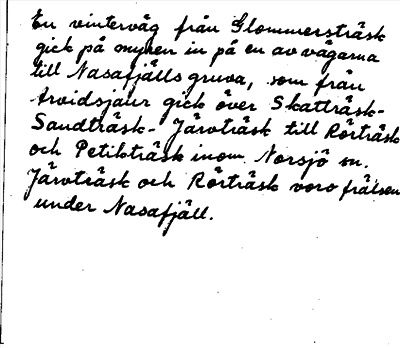 En vinterväg från Glommersträsk
gick på myren in på en av vägarna
till Nasafjälls gruva, som från
Arvidsjaur gick över Skatträsk-
Sandträsk- Järvträsk till Rörträsk
och Petikträsk inom Norsjö sn.
Järvträsk och Rörträsk voro frälsen
under Nasafjäll.